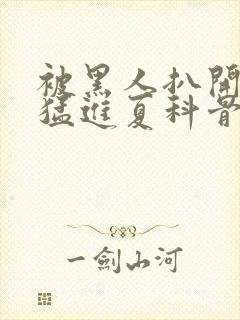 被黑人扒開
猛進夏科骨
一劍山河